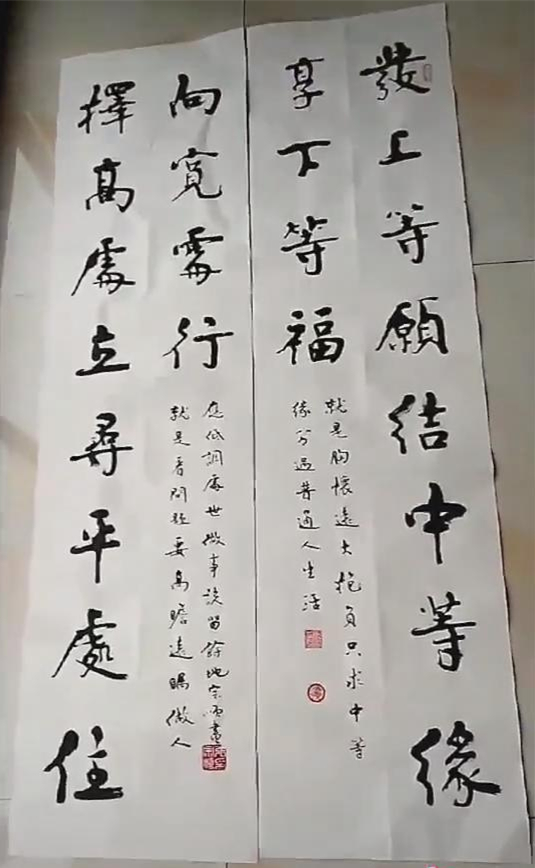 發上等願結中等緣
享下等福
就是胸懷遠大抱負只求中等
緣分過普通人生活
擇高處立尋平處住
向寬處行
就是看問題要高瞻遠矚做人
應低調處世做事該留餘地